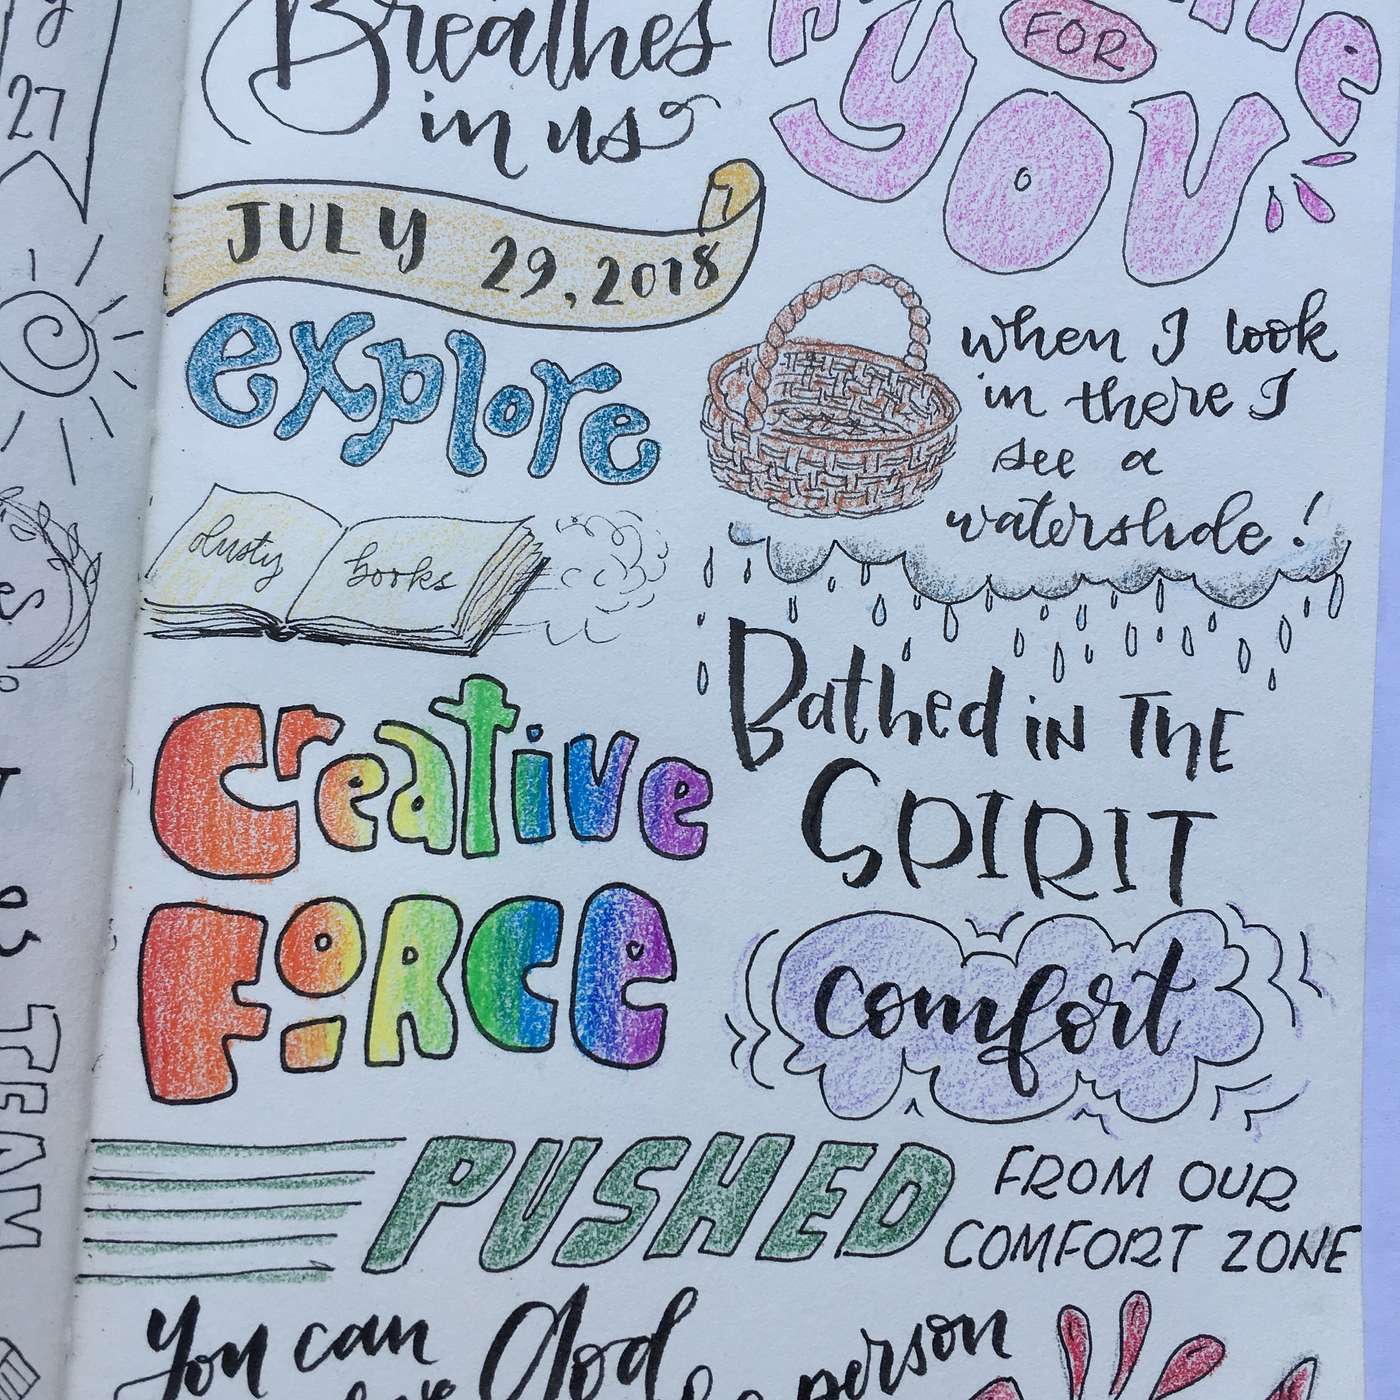 Breathes
in us
FOR
YOU
27
JULY 29, 2018
explore
when I look
in there I
see a
waterslide!
dusty books
Bathed in THE
SPIRIT
Creative
FORCE
comfort
PUSHED
FROM OUR
COMFORT ZONE
TEAM
You can
God
person